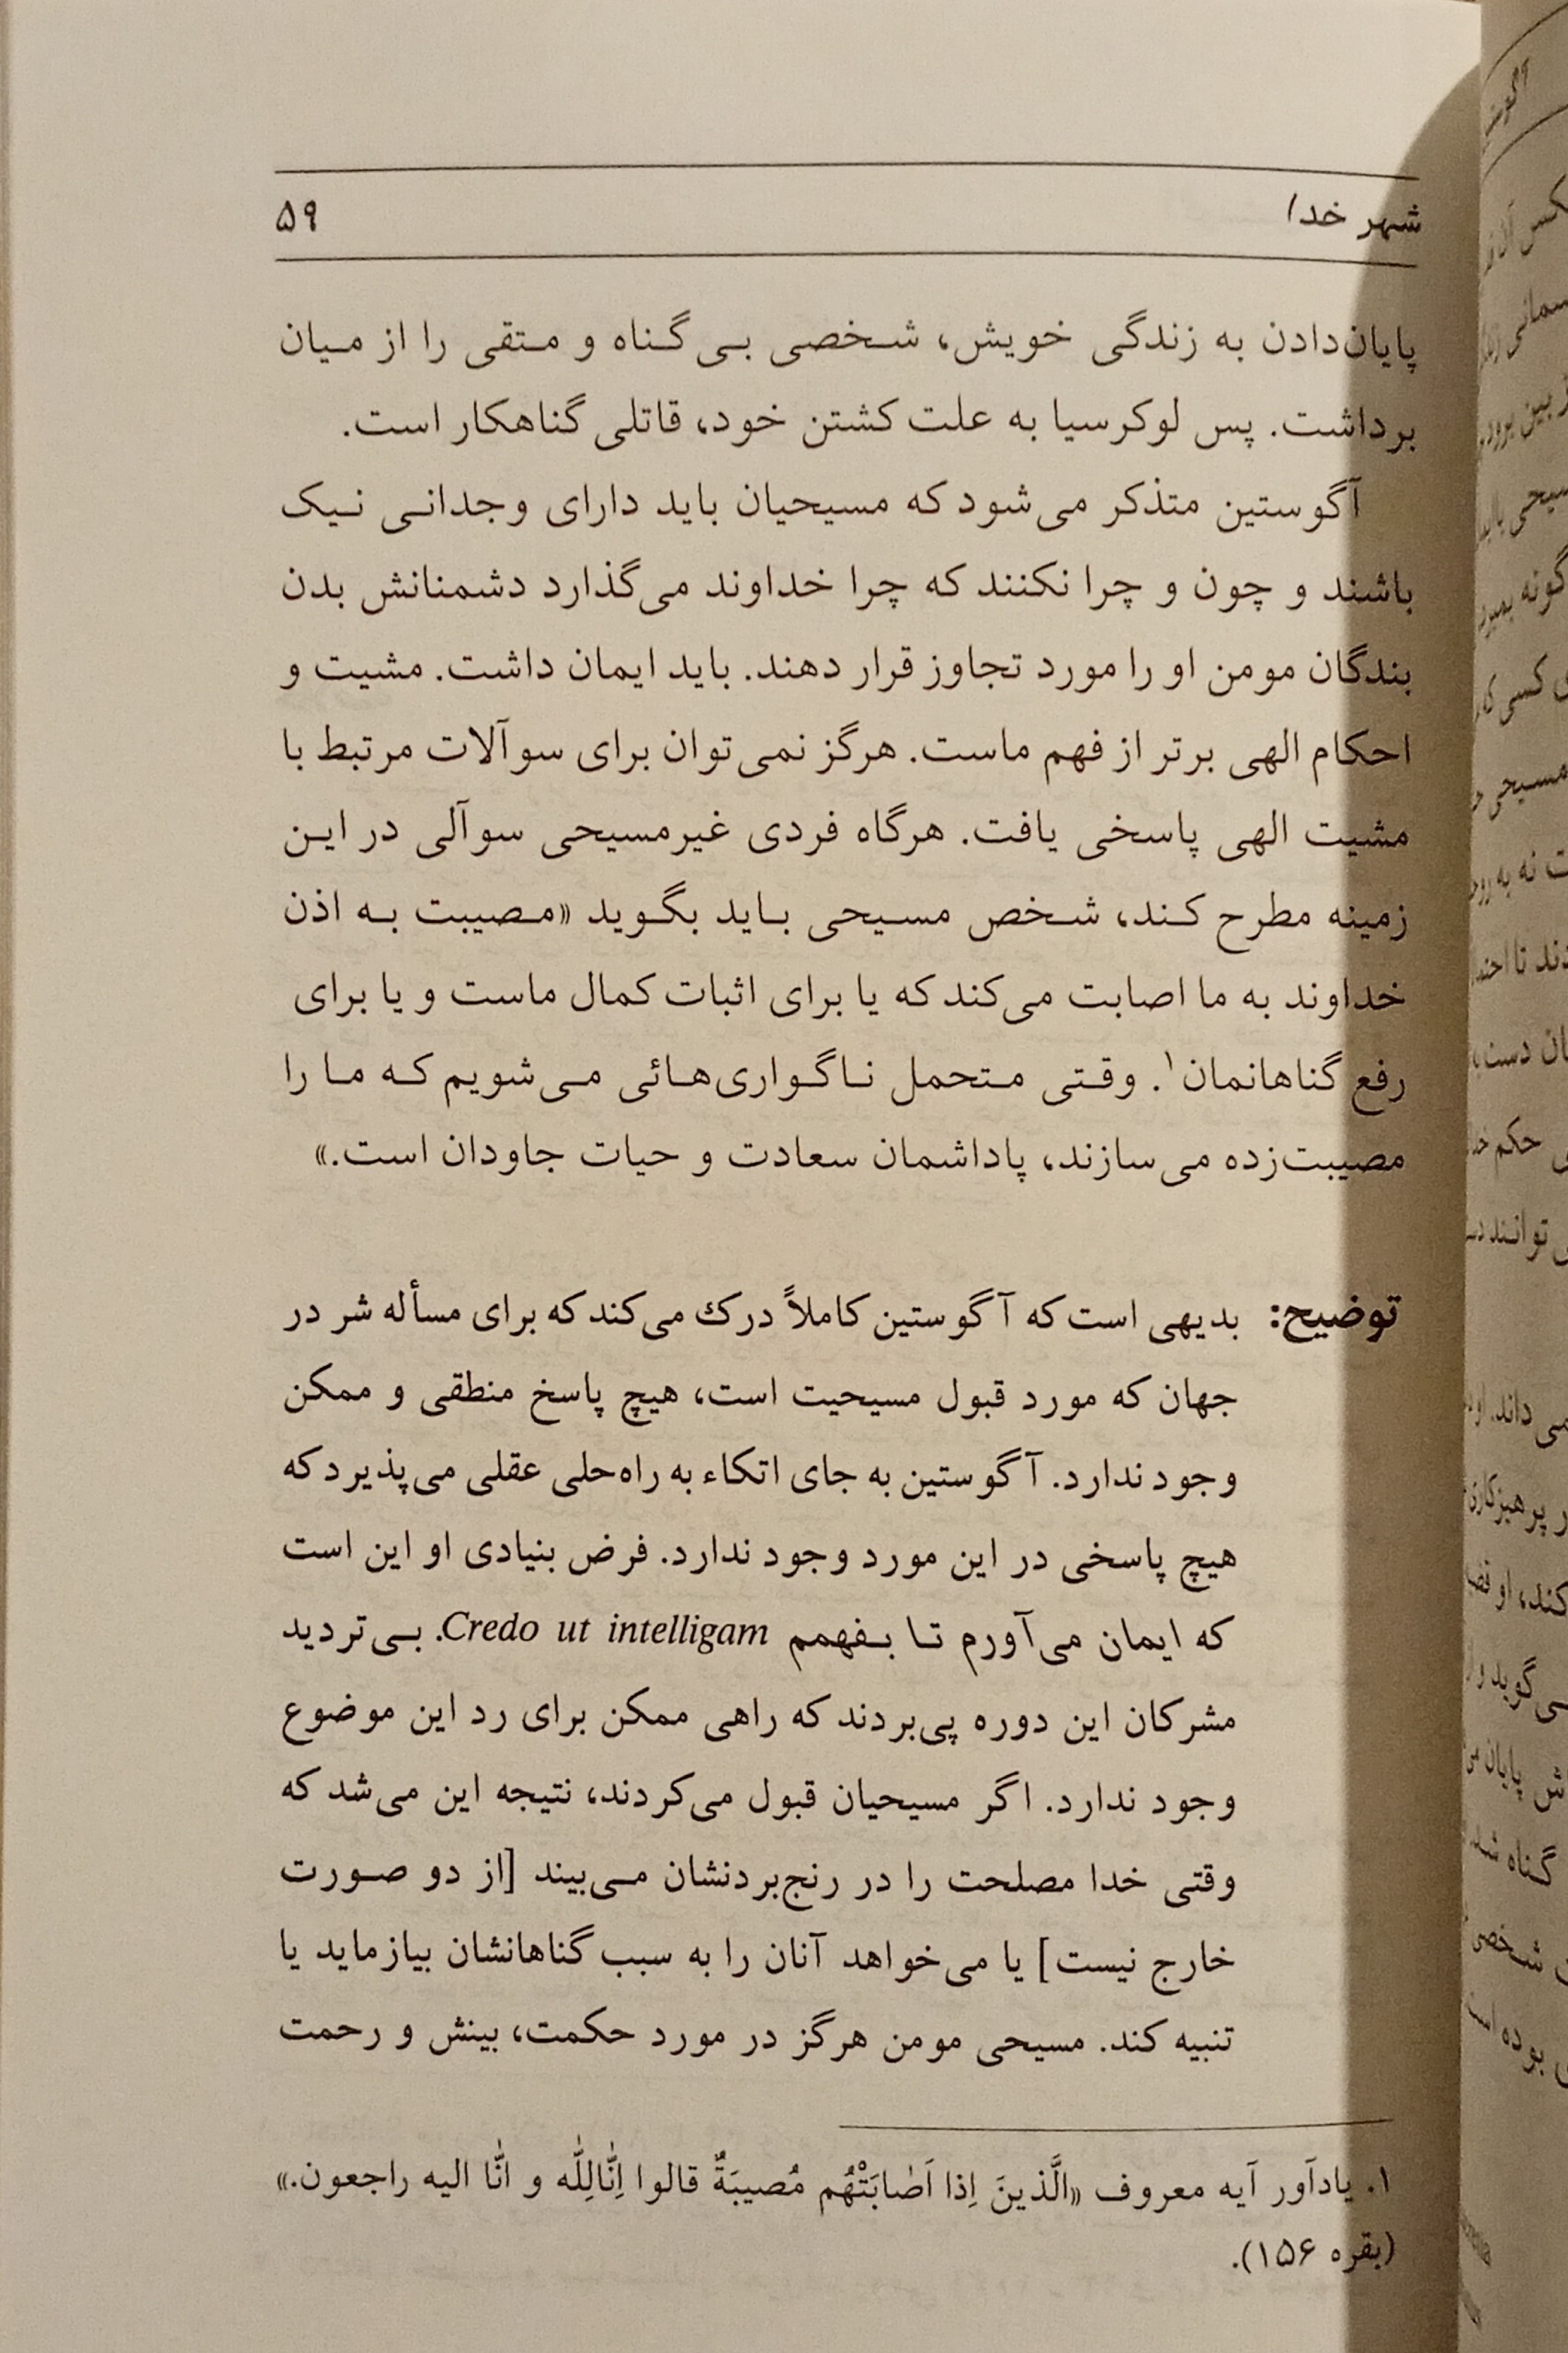 شهر خدا
۵۹
پایان‌دادن به زندگی خویش، شخصی بی‌گناه و متقی را از میان
برداشت. پس لوکرسیا به علت کشتن خود، قاتلی گناهکار است.
آگوستین متذکر می‌شود که مسیحیان باید دارای وجدانی نیک
باشند و چون و چرا نکنند که چرا خداوند می‌گذارد دشمنانش بدن
بندگان مومن او را مورد تجاوز قرار دهند. باید ایمان داشت. مشیت و
احکام الهی برتر از فهم ماست. هرگز نمی‌توان برای سوآلات مرتبط با
مشیت الهی پاسخی یافت. هرگاه فردی غیرمسیحی سوآلی در این
زمینه مطرح کند، شخص مسیحی باید بگوید «مصیبت به اذن
خداوند به ما اصابت می‌کند که یا برای اثبات کمال ماست و یا برای
رفع گناهانمان۱. وقتی متحمل ناگواری‌هائی می‌شویم که ما را
مصیبت‌زده می‌سازند، پاداشمان سعادت و حیات جاودان است.»
توضیح: بدیهی است که آگوستین کاملاً درک می‌کند که برای مسأله شر در
جهان که مورد قبول مسیحیت است، هیچ پاسخ منطقی و ممکن
وجود ندارد. آگوستین به جای اتکاء به راه‌حلی عقلی می‌پذیرد که
هیچ پاسخی در این مورد وجود ندارد. فرض بنیادی او این است
که ایمان می‌آورم تا بفهمم Credo ut intelligam. بی‌تردید
مشرکان این دوره پی‌بردند که راهی ممکن برای رد این موضوع
وجود ندارد. اگر مسیحیان قبول می‌کردند، نتیجه این می‌شد که
وقتی خدا مصلحت را در رنج‌بردنشان می‌بیند [از دو صورت
خارج نیست] یا می‌خواهد آنان را به سبب گناهانشان بیازماید یا
تنبیه کند. مسیحی مومن هرگز در مورد حکمت، بینش و رحمت
۱. یادآور آیه معروف «الَّذینَ اِذا اَصٰابَتْهُم مُصیبَةٌ قالوا اِنّٰالِلّٰه و انّٰا الیه راجعون.»
(بقره ۱۵۶).